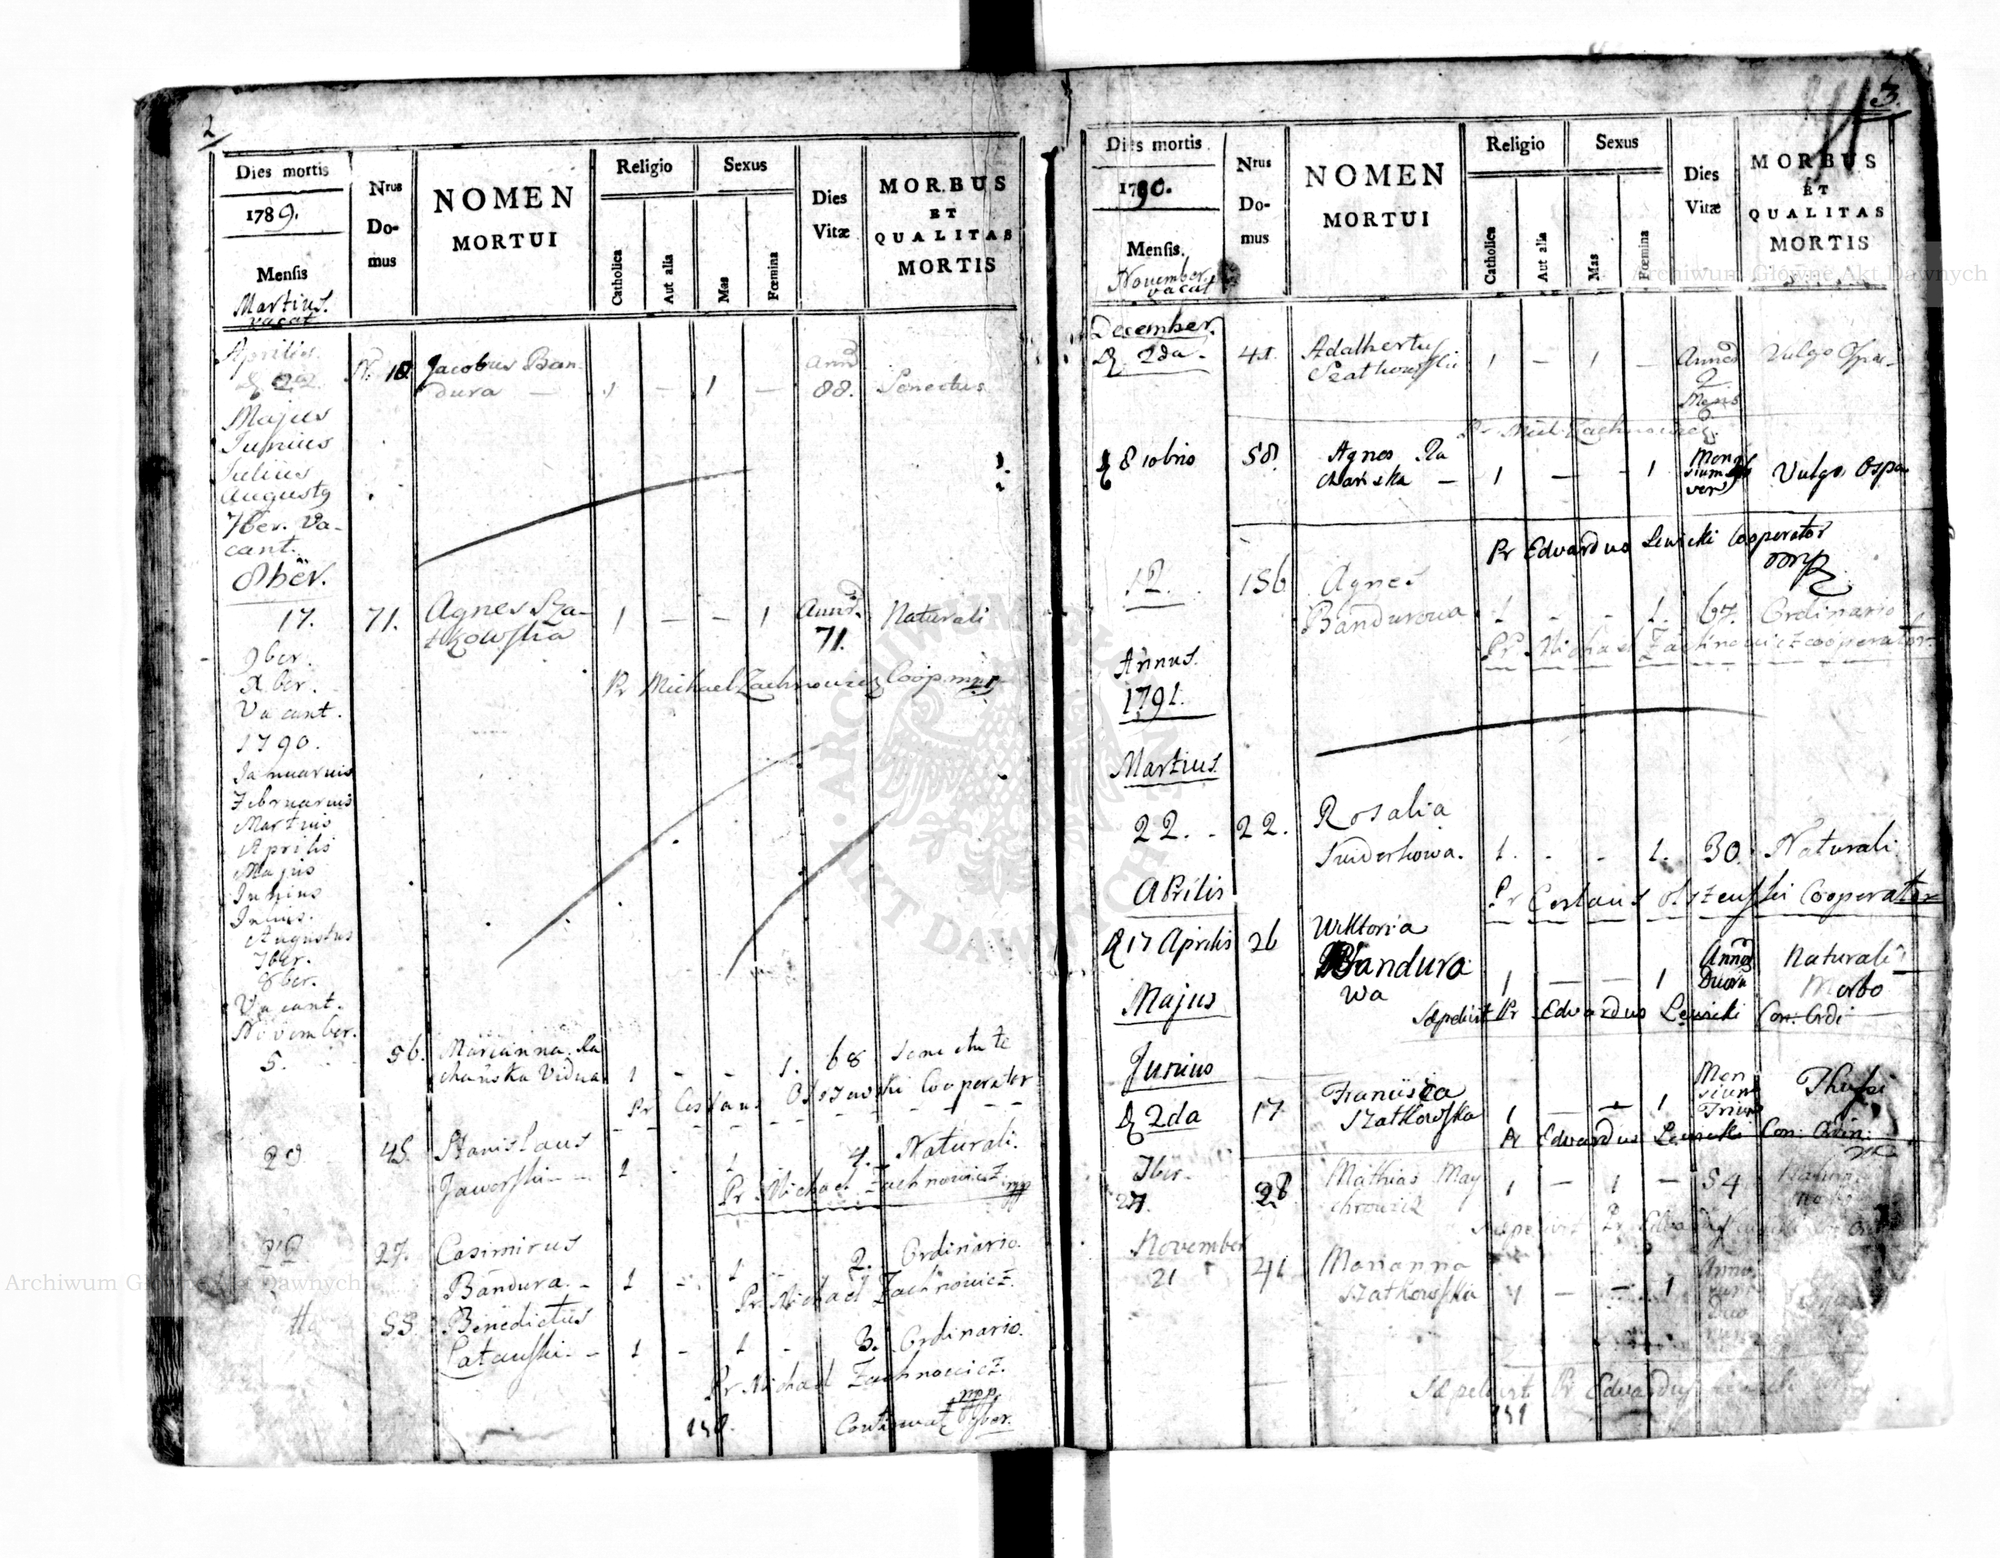 2
Dies mortis
1789.
Mensis
Martius.
vacat
Nrus
Do-
mus
NOMEN
MORTUI
Religio
Catholica
Aut alia
Sexus
Mas
Fœmina
Dies
Vitæ
MORBUS
ET
QUALITAS
MORTIS
Aprilis.
22. N. 18 Jacobus Ban-
dura — 1 — 1 — 88. Senectus
Majus
Junius
Julius
Augusty
7ber. Va-
cant.
8ber.
17. 71. Agnes Sza-
tkowska 1 — — 1 Annor. 71. Naturali
9ber.
Xber.
Vacant.
Pr Michael Zachnowicz Coop. mpp
1790.
Januarius
Februarius
Martius
Aprilis
Majus
Junius
Julius.
Augustus
7ber.
8ber.
Vacant.
November.
5. 56. Marianna Ra
chańska Vidua 1 - - 1. 68 senectute
Pr Ceslaus Olszewski Cooperator
29 45. Stanislaus
Jaworski - - 1 - 1 4. Naturali.
Pr Michael Zachnowicz mpp
27. Casimirus
Bandura. - 1 - 1 2. Ordinario.
Pr Michael Zachnowicz.
53 Benedictus
Latauski. - 1 - 1 - 3. Ordinario.
Pr Michael Zachnowicz.
mpp
150. Continuat
3.
Dies mortis
1790.
Mensis.
November
vacat
Nrus
Do-
mus
NOMEN
MORTUI
Religio
Catholica
Aut alia
Sexus
Mas
Fœmina
Dies
Vitæ
MORBUS
ET
QUALITAS
MORTIS
December.
D 2da - 41. Adalbertus
Szatkowski 1 — 1 — 2 Vulgo Ospa-
Pr Mich. Zachnowicz.
8 10bris 58. Agnes Ra
chańska — 1 — - 1 Vulgo Ospa
Pr Edvardus Lewicki Cooperator
mpp
12. 156 Agnes
Bandurowa 1 - - 1. 67. Ordinario
Pr. Michael Zachnowicz cooperator
Annus.
1791.
Martius
22. - 22. Rosalia
Swiderkowa. 1. - - 1. 30. Naturali
Pr Ceslaus Olszewski Cooperator
Aprilis
D 17 Aprilis 26 Wiktoria
Bandura
wa 1 — — 1 Annor Naturali
Morbo
Sepelivit Pr Edvardus Lewicki Con. Ordi
Majus
Junius
D 2da 17 Franciśca
Szatkowska 1 — — 1 Men
sium
Trium
Pr Edvardus Lewicki Con. Ordin:
7ber.
27. 28 Mathias May
chrowicz 1 — 1 — 54
Sepelivit Pr
November
21 41 Marianna
Szatkowska 1 — — 1
Sepelivit Pr Edvardus
151
Archiwum Główne Akt Dawnych
Archiwum Główne Akt Dawnych
ARCHIWUM GŁÓWNE
AKT DAWNYCH